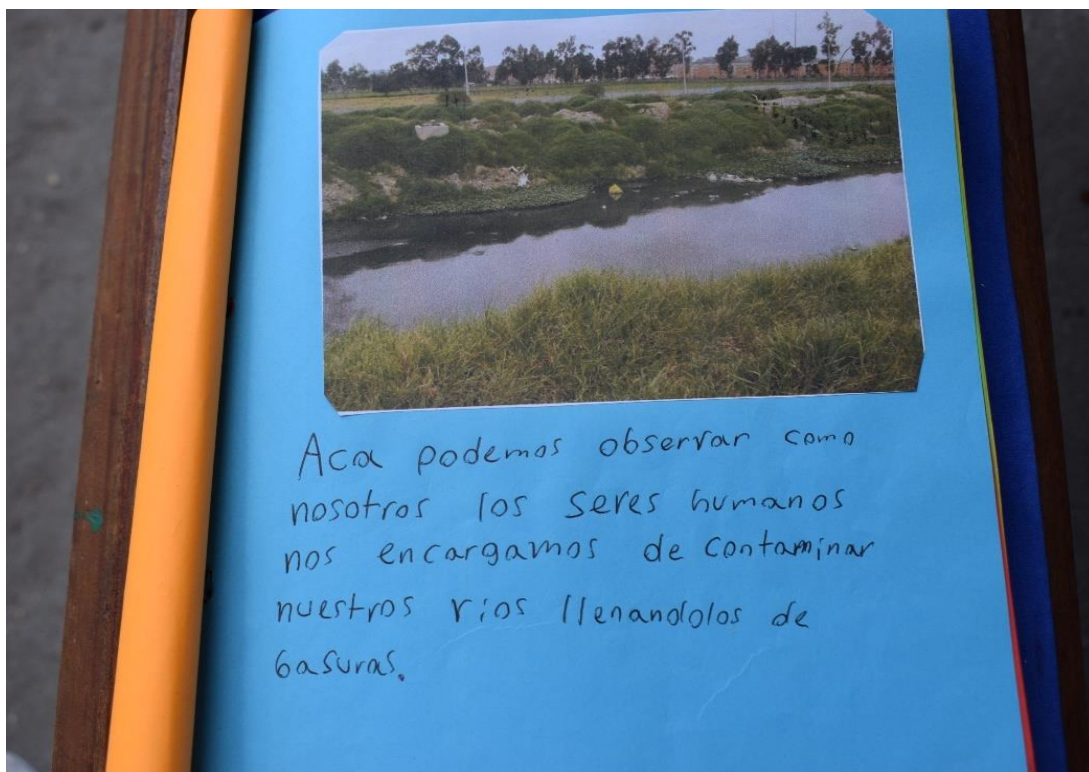 Aca podemos observar como
nosotros los seres humanos
nos encargamos de contaminar
nuestros ríos llenandolos de
basuras.